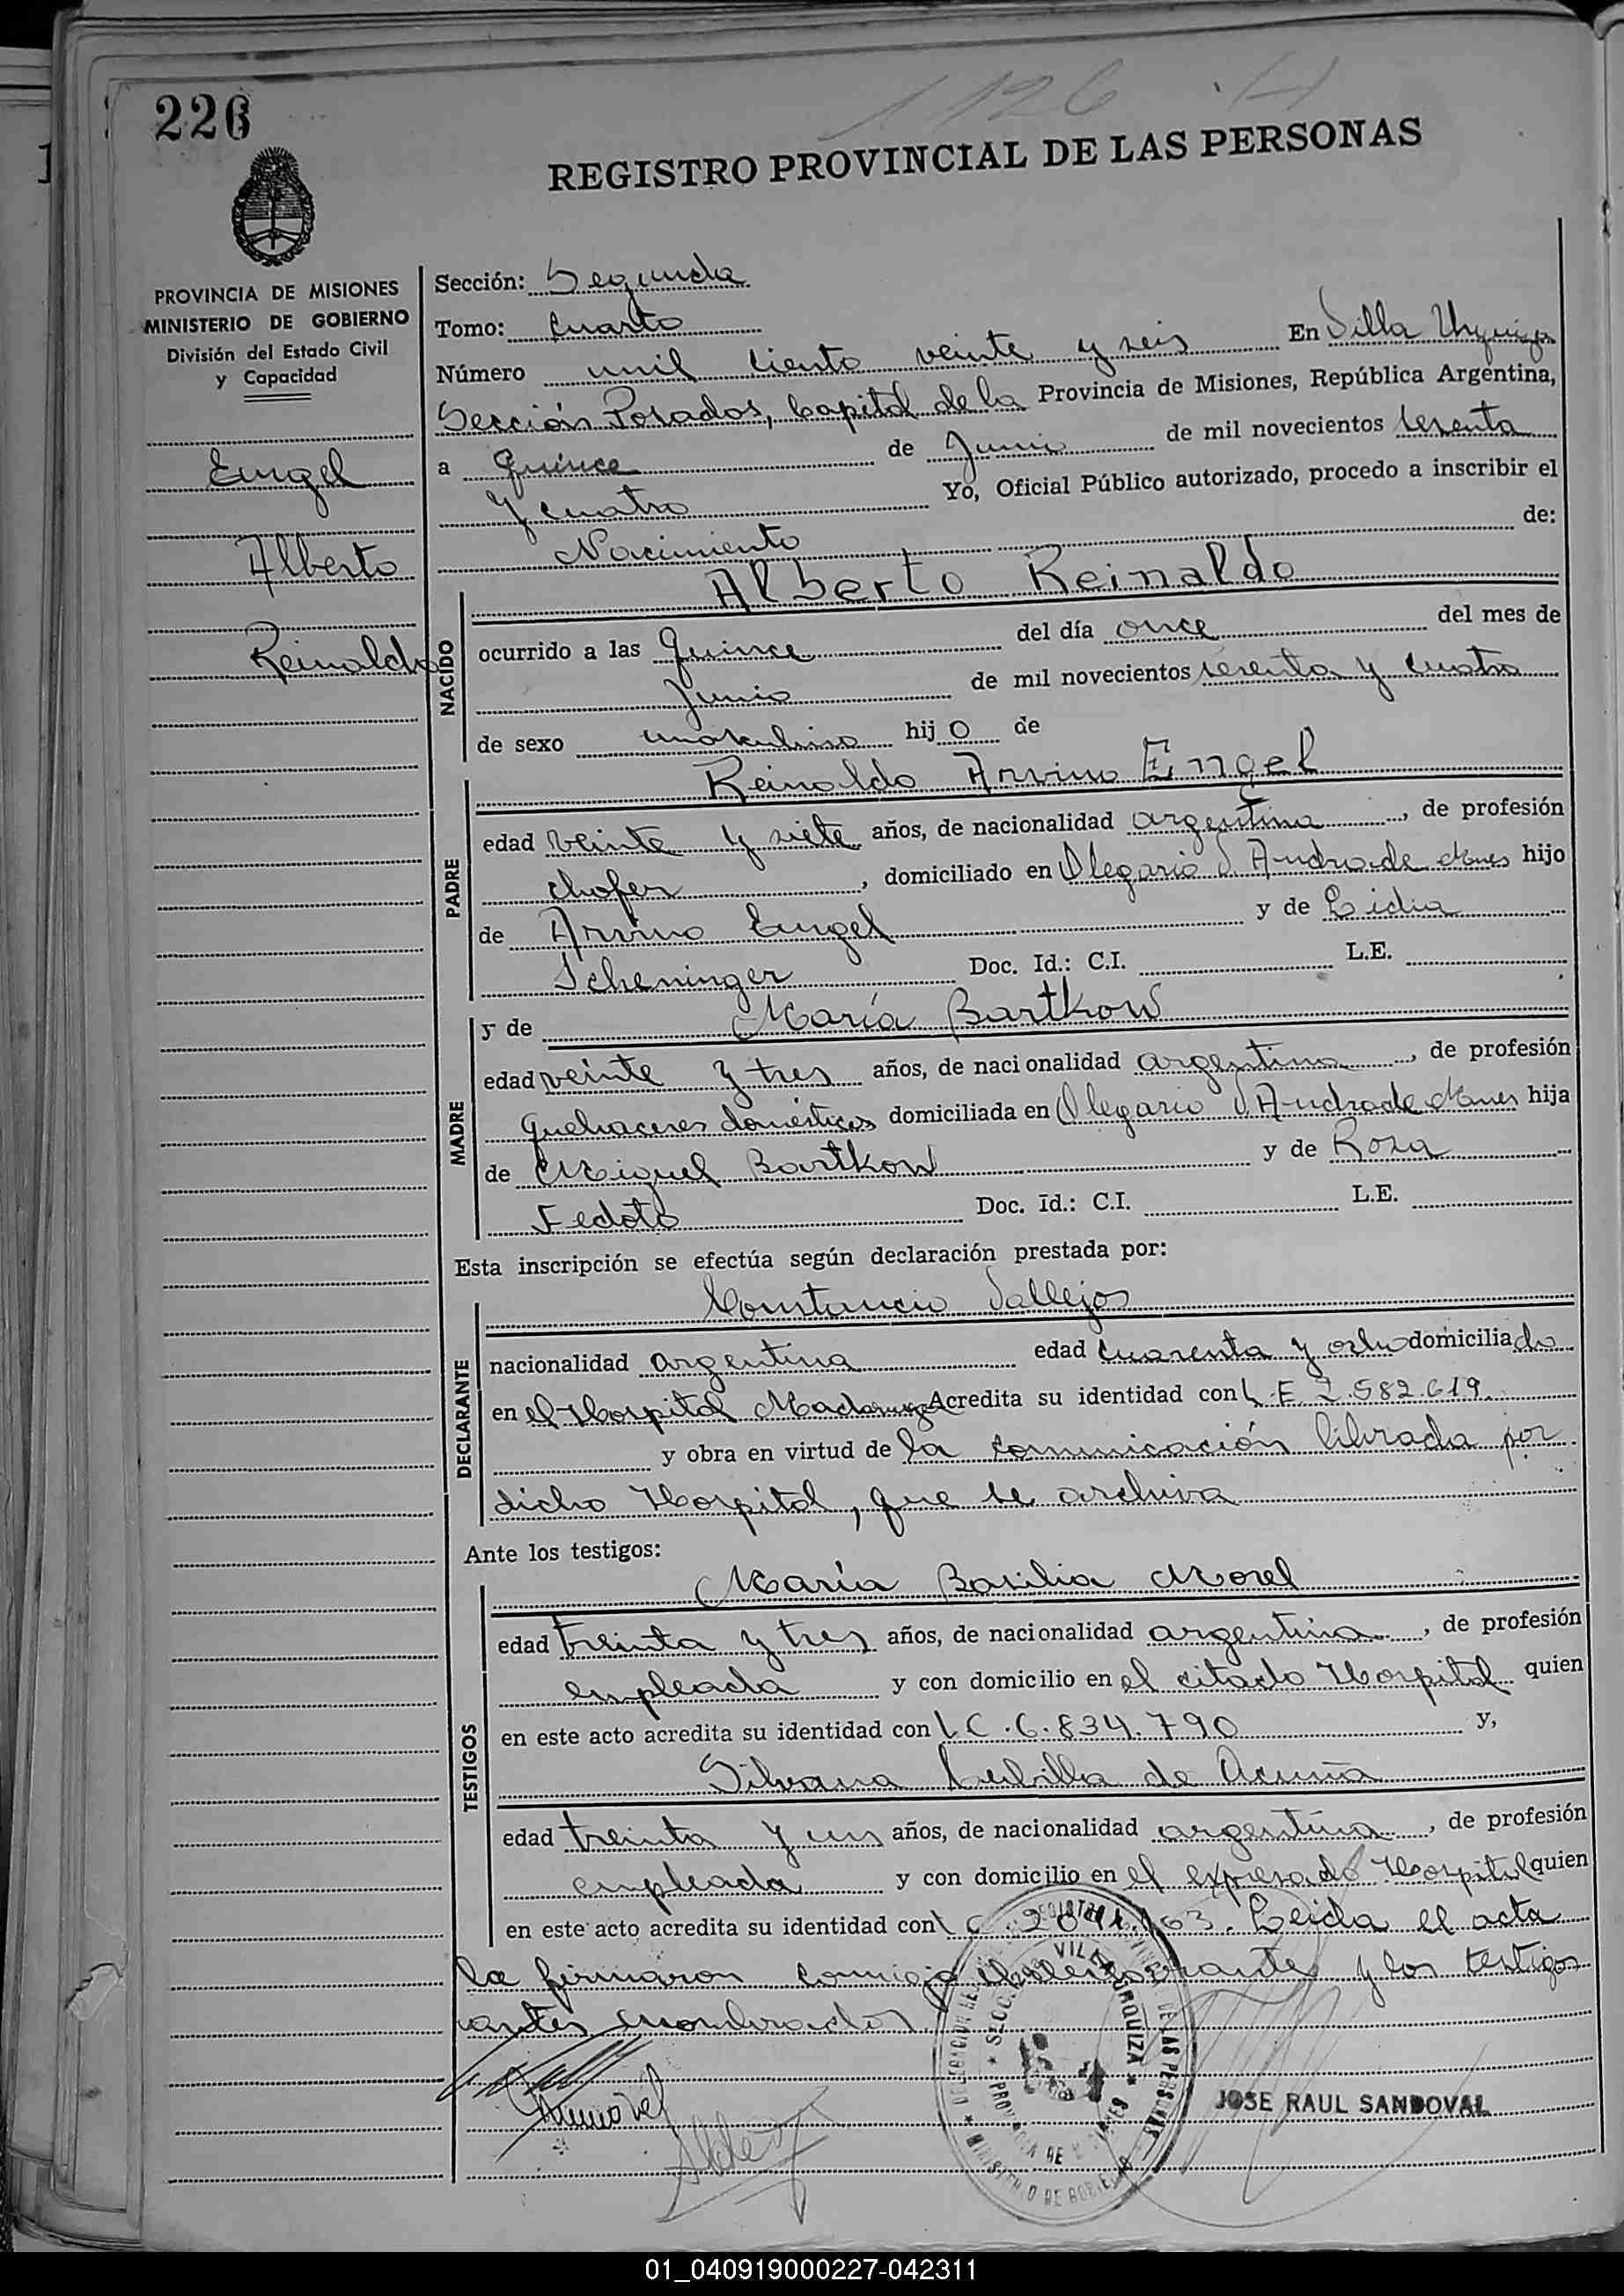 1126 · H
226
REGISTRO PROVINCIAL DE LAS PERSONAS
PROVINCIA DE MISIONES
MINISTERIO DE GOBIERNO
División del Estado Civil
y Capacidad
Engel
Alberto
Reinaldo
Sección: Segunda
Tomo: Cuarto
Número mil ciento veinte y seis En Villa Urquiza
Sección Posadas, Capital de la Provincia de Misiones, República Argentina,
a Quince de Junio de mil novecientos sesenta
y cuatro Yo, Oficial Público autorizado, procedo a inscribir el
Nacimiento de:
NACIDO
Alberto Reinaldo
ocurrido a las Quince del día once del mes de
Junio de mil novecientos sesenta y cuatro
de sexo masculino hijo de
PADRE
Reinaldo Arvino Engel
edad veinte y siete años, de nacionalidad argentina, de profesión
chofer, domiciliado en Olegario V. Andrade Mnes hijo
de Arvino Engel y de Lidia
Scheninger Doc. Id.: C.I. L.E.
MADRE
y de María Bartkow
edad veinte y tres años, de nacionalidad argentina, de profesión
quehaceres domésticos domiciliada en Olegario V. Andrade Mnes hija
de Miguel Bartkow y de Rosa
Fedoto Doc. Id.: C.I. L.E.
Esta inscripción se efectúa según declaración prestada por:
DECLARANTE
Constancio Vallejos
nacionalidad argentina edad cuarenta y ocho domiciliado
en el Hospital Madariaga Acredita su identidad con L.E. 2.582.619.
y obra en virtud de la comunicación librada por
dicho Hospital, que se archiva
Ante los testigos:
TESTIGOS
María Basilia Morel
edad treinta y tres años, de nacionalidad argentina, de profesión
empleada y con domicilio en el citado Hospital quien
en este acto acredita su identidad con L C. 6.834.790 y,
Silvana Cubilla de Acuña
edad treinta y un años, de nacionalidad argentina, de profesión
empleada y con domicilio en el expresado Hospital quien
en este acto acredita su identidad con L C. Leida el acta
la firmaron conmigo el declarante y los testigos
antes nombrados
REGISTRO PROVINCIAL DE LAS PERSONAS
VILLA URQUIZA
PROVINCIA DE MISIONES
MINISTERIO DE GOBIERNO
JOSE RAUL SANDOVAL
01_040919000227-042311